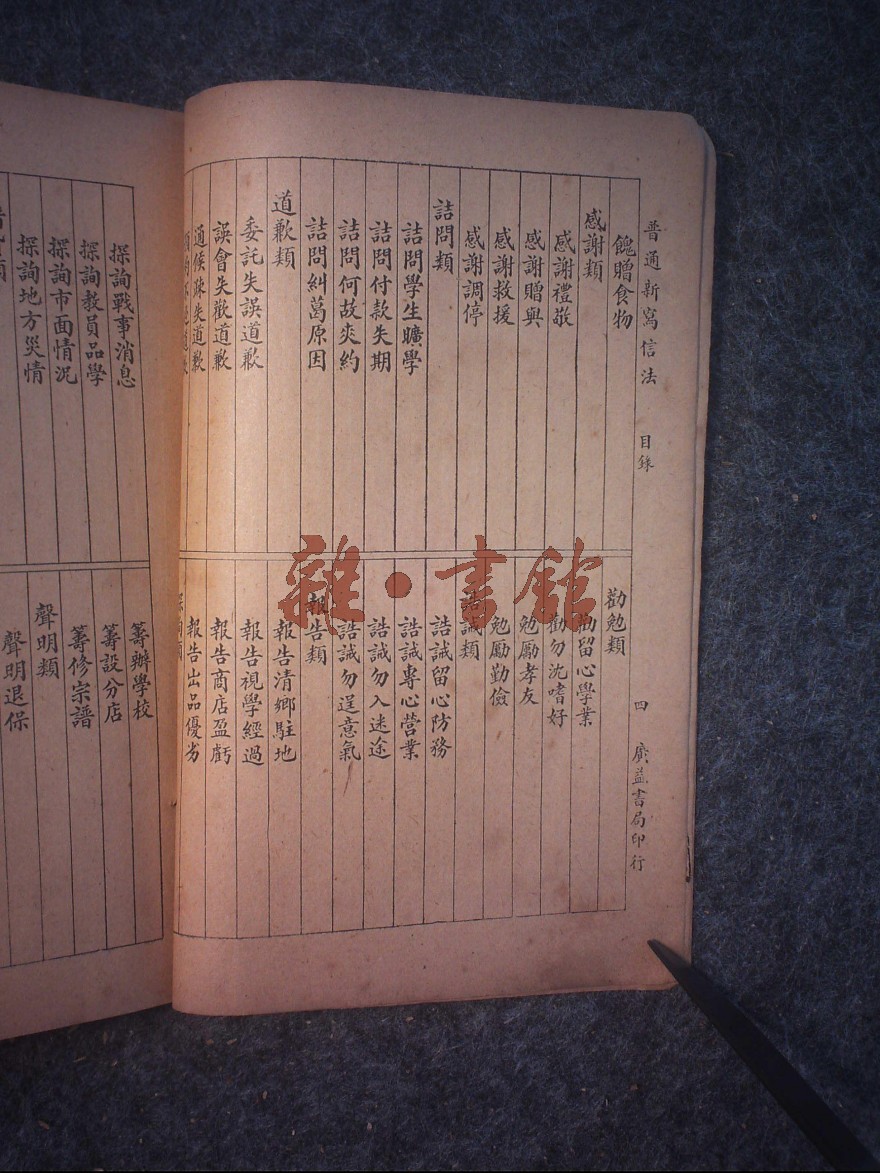 普通新寫信法 目錄 四 廣益書局印行
餽贈食物
感謝類
感謝禮敬
感謝贈與
感謝救援
感謝調停
詰問類
詰問學生曠學
詰問付款失期
詰問何故爽約
詰問糾葛原因
道歉類
委託失誤道歉
誤會失歡道歉
通候疎失道歉
勸勉類
勸留心學業
勸勿沈嗜好
勉勵孝友
勉勵勤儉
誥誡類
誥誡留心防務
誥誡專心營業
誥誡勿入迷途
誥誡勿逞意氣
報告類
報告清鄉駐地
報告視學經過
報告商店盈虧
報告出品優劣
探詢類
探詢戰事消息
探詢教員品學
探詢市面情況
探詢地方災情
籌辦學校
籌設分店
籌修宗譜
聲明類
聲明退保
雜·書館